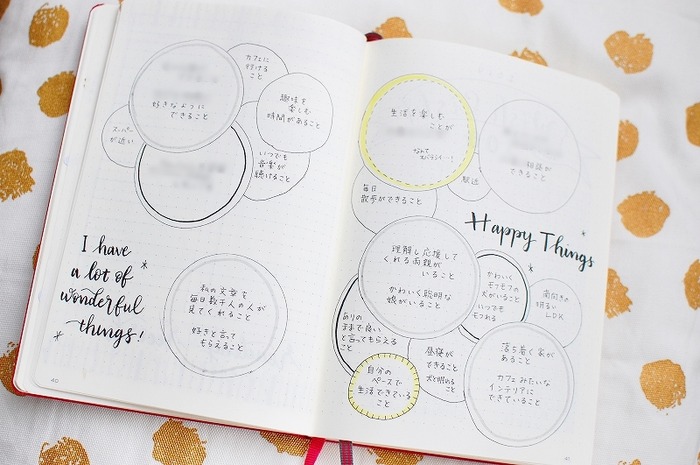 カフェに
行ける
こと
趣味を
楽しむ
時間があること
好きなように
できること
スーパー
が近い
いつでも
音楽が
聴けること
I have
a lot of
wonderful
things!
私の文章を
毎日数千人の人が
見てくれること
好きと言って
もらえること
40
生活を楽しむ
ことが
なんて
相談が
できること
駅近
毎日
散歩ができること
Happy Things
理解し応援して
くれる両親が
いること
かわいく聡明な
娘がいること
かわいく
モフモフの
犬がいること
いつでも
モフれる
南向きの
明るい
LDK
ありの
ままで良い
と言ってもらえる
こと
昼寝が
できること
犬と眠る
こと
落ち着く家が
あること
カフェみたいな
インテリアに
できていること
自分の
ペースで
生活できている
こと
41